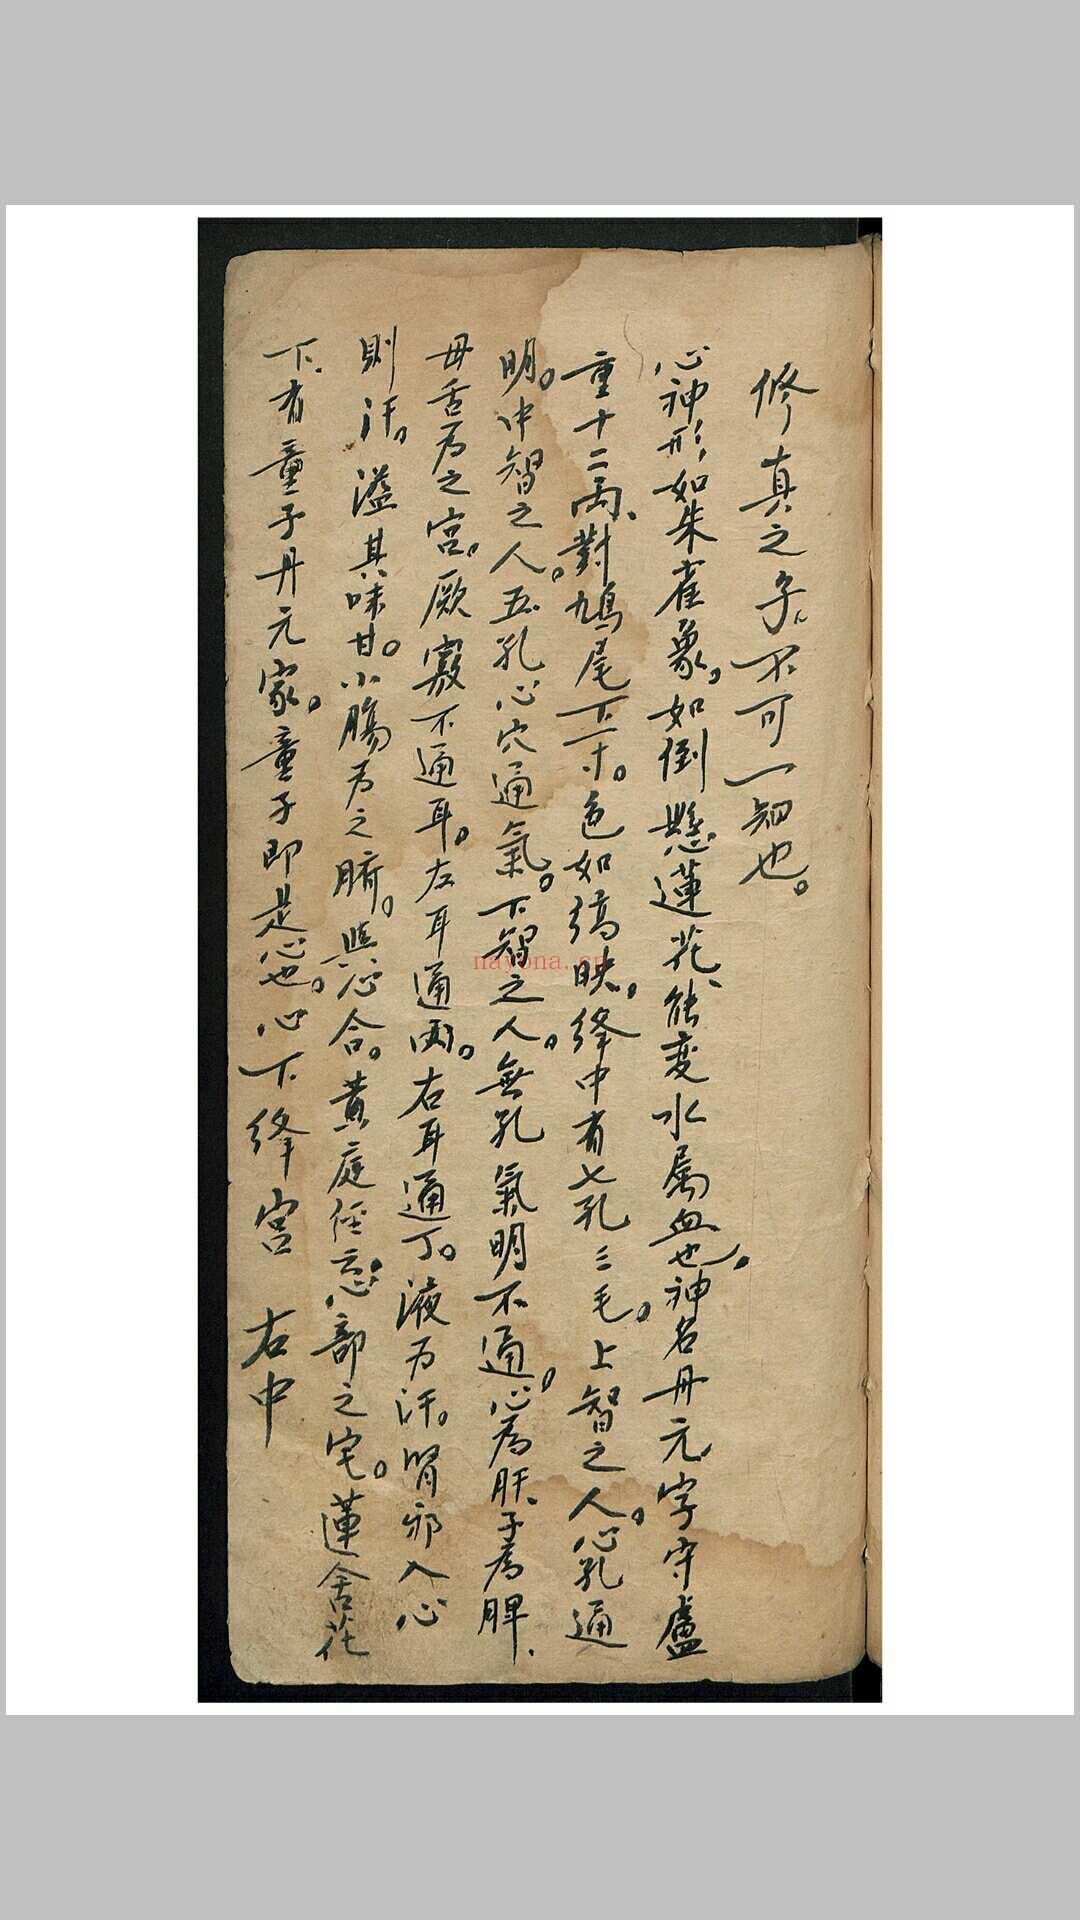 修真之子。不可一知也。
心神形如朱雀象。如倒懸蓮花、能变水屬血也。神名丹元、字守靈
重十二兩、對鳩尾下一寸。色如縞映。絳中有七孔三毛。上智之人。心孔通
明。中智之人。五孔心穴通氣。下智之人。無孔氣明不通。心為肝、子為脾、
母舌为之宫。厥竅不通耳。左耳通丙。右耳通丁。液为汗。腎邪入心
則汗。溢其味甘。小腸为之腑。與心合。黄庭經 部之宅。蓮舍花
下、有童子丹元家。童子即是心也。心下絳宫 右中
nayona.cn